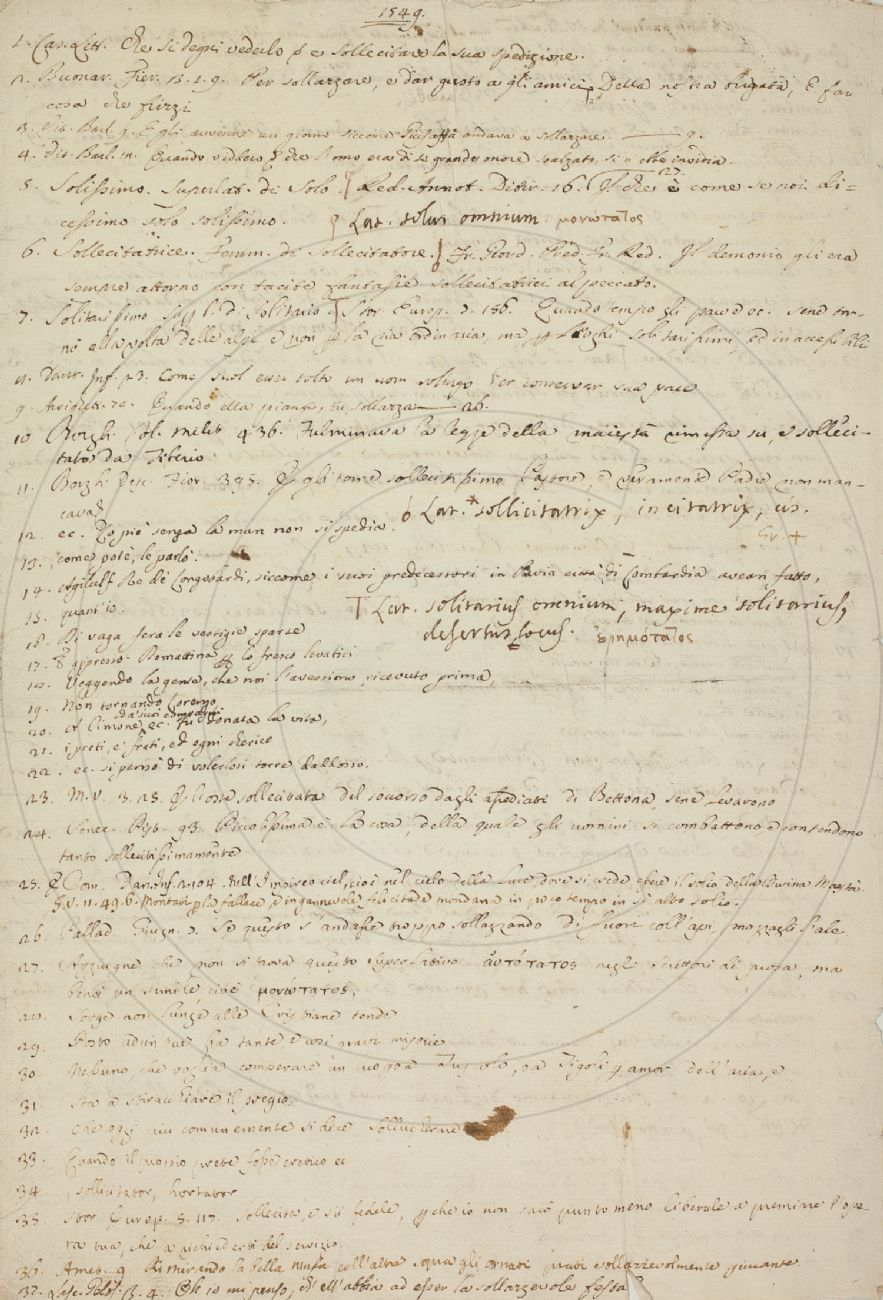 1549.
1. Cas. Lett. Che si degni vederlo e sollecitare la sua spedizione.
2. Buonar. Fier. 3. 1. 9. Per sollazzare, e dar gusto a gli amici Della nostra brigata, E far
cosa che
3. Vit. Barl. 9. E gli avvenne un giorno siccome Giosaffà andava a sollazzare. 9.
4. Vit. Barl. Quando videro che l'omo era di sì grande onore sì n'ebbe invidia.
5. Solissimo. Superlat. di Solo Red. Annot. Ditir. 16. Il che è come se noi di-
cessimo solo solissimo. Lat. solus omnium. μονώτατος
6. Sollecitatrice. Femm. di Sollecitatore. Fr. Giord. Pred. Fr. Red. Il demonio gli era
sempre attorno con tacite fantasie sollecitatrici al peccato.
7. Solitarissimo Superl. di Solitario Stor. Europ. 156. Quando tempo gli parve ec. sene
alla volta delle alpi e non la via ordinaria, ma luoghi solitarissimi, ed inaccessibili
Dant. Inf. 23. Come suol esser tolto un uom solingo Per conservar sua pace
9. Arrighet. 70. Quando ella piange, tu sollazza 26.
10 Borgh. Col. Milit 436. Fulminava la legge della maiestà rimessa su, e solleci-
tato da Tiberio
11. Borgh. Vesc. Fior. 395. Egli come sollecitissimo Pastore, e veramente Padre non man-
cava
12. ec. Lo piè senza la man non si spedia. ó Lat. sollicitatrix, incitatrix, cis.
13. , come potè, le parlò.
14. Agilulf Re de' Longobardi, siccome i suoi predecessori in Pavia città di Lombardia avean fatto,
15. quant'io. T Lat. solitarius omnium, maxime solitarius,
16. Di vaga fera le vestigie sparse desertus locus. ἐρημότατος
17. E appresso. Domattina lo fresco levatici
Veggendo la gente, che noi l'avessimo ricevuto prima,
19. Non tornando
20. et Cimone ec. fu donata la vita,
21. i preti, e' frati, ed ogni cherico
22. ec. si pensò di volerlosi torre dallosso.
23. M. V. 3. 25. L'oste sollecitata del soccorso dagli assediati di Bettona, sene levarono
24. Senec. Pist. 93. Piccolissima è la cosa, della quale gli uomini si combattono e contendono
tanto sollecitissimamente
25. Com. Dant. Inf. 2. 104. Nell'Empireo ciel, cioè nel cielo della luce dove si crede essere il solio della Divina Maestà.
G. V. 11. 49. 6. Montasi per la fallace, e ingannevole felicitade mondana in poco tempo in sì alto solio.
26. Pallad. Giugn. Se questo s'andasse troppo sollazzando di fuori coll'api, mozzagli l'ale.
27. Aggiugne che non si trova questo superlativo αὐτότατος negli scrittori di prosa, ma
bensì un simile, cioè μονώτατος.
Sorge non lunge alle Cristiane tende
29. Posto ad un rue
30 Nessuno, che voglia comperare un luogo a Tuscolo, o a Tigoli, amor dell'aria, e
31. Sta a stiracchiare il pregio.
32. che oggi più comunemente si dice Solluc
33. Quando il proprio prete fosse eretico ec
34. , sollicitator, hortator
35. Stor. Europ. 5. 117. Sollecita, e sii fedele, che io non sarò punto meno liberale a premiare l'ope-
ra tua, che a richiederti del servizio.
36. Amet. 9 Rimirando la bella ninfa coll'altre sopra gli ornati prati sollazzevolmente giucante
37. Lasc. Gelos. 3. 4. Oh io mi penso, ch'ell'abbia ad esser la sollazzevole festa!